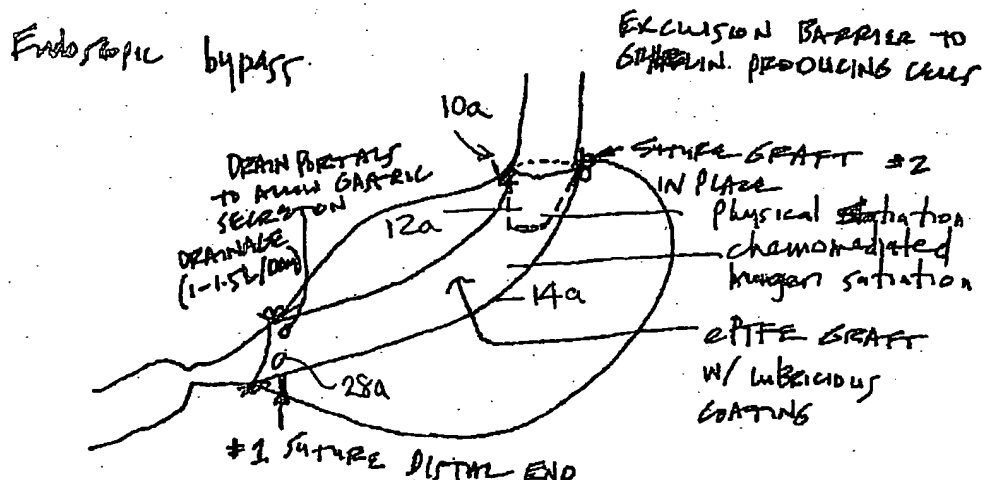 Endoscopic bypass.
EXCLUSION BARRIER TO
GHRELIN PRODUCING CELLS
10a
DRAIN PORTALS
TO ALLOW GASTRIC
SECRETION
DRAINAGE
(1-1.5L/DAY)
SUTURE GRAFT #2
IN PLACE
12a
Physical satiation
chemomediated
hunger satiation
14a
ePTFE GRAFT
W/ LUBRICIOUS
COATING
28a
#1 SUTURE DISTAL END